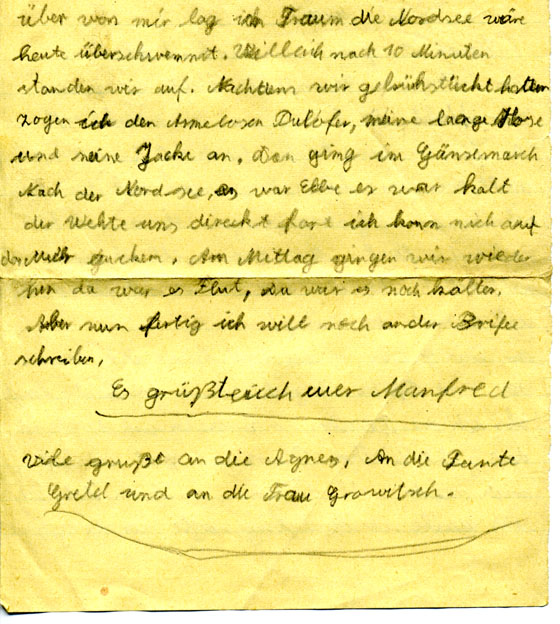 über von mir lag ich Traum die Nordsee wäre
heute überschwemmt. Villeich nach 10 Minuten
standen wir auf. Nachdens wir gefrühstückt hatten
zogen ich den Armelosen Pulofer, meine lange Hose
und meine Jacke an. Dan ging im Gänsemarsch
Nach der Nordsee, es war Ebbe es war kalt
der Wehte uns direckt fort ich konn nich auf
das Mehr gucken. Am Mittag gingen wir wieder
hin da war es Flut, Da war es noch kalter.
Aber nun fertig ich will noch ander Brife
schreiben,
Es grüßt euch euer Manfred
Vile gruße an die Agnes, An die Tante
Gretel und an die Frau Growitsch.